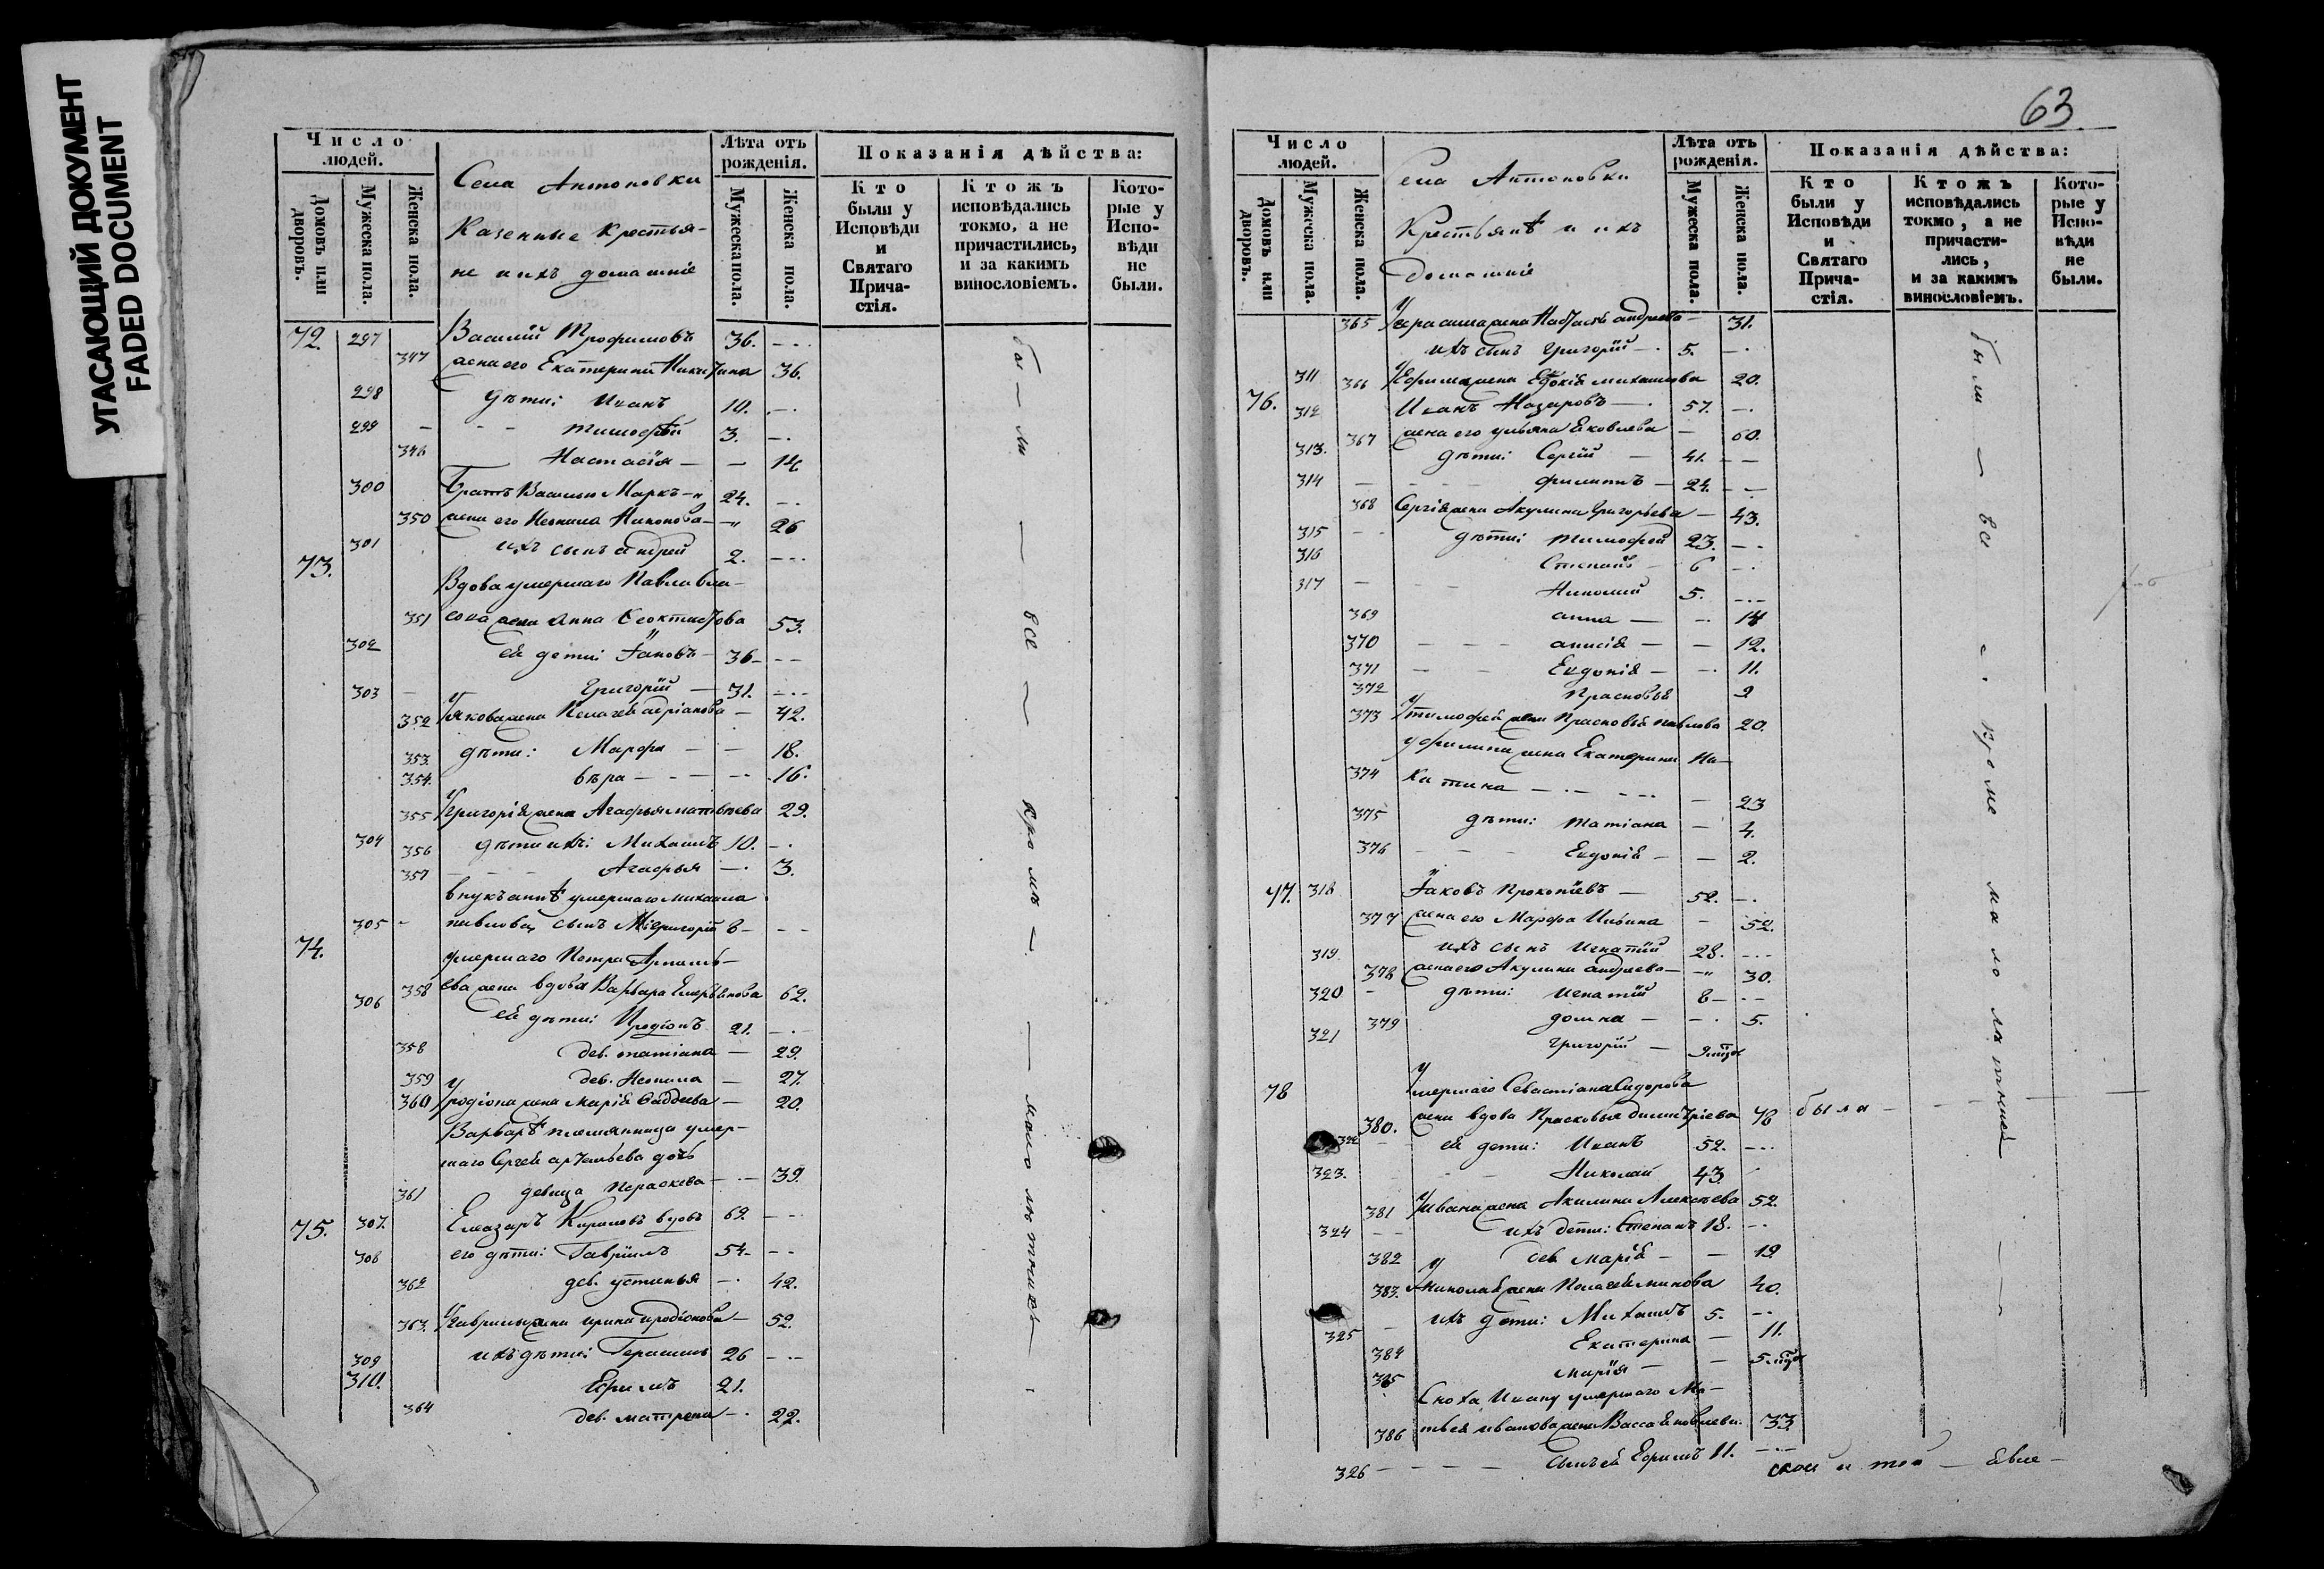 УГАСАЮЩИЙ ДОКУМЕНТ
FADED DOCUMENT
Число людей.
Домовъ или дворовъ.
Мужеска пола.
Женска пола.
Села Антоновки
Казенные крестья-
не и ихъ домашніе
Лѣта отъ рожденія.
Мужеска пола.
Женска пола.
Показанія дѣйства:
Кто были у Исповѣди и Святаго Прича-стія.
Ктожъ исповѣдались токмо, а не причастились, и за какимъ винословіемъ.
Кото-рые у Испо-вѣди не были.
72. 297 Василій Трофимовъ 36.
347 жена его Екатерина Никитина 36.
298 дѣти: Иванъ 10.
299 Тимофей 3.
348 Настасія 14
300 Братъ Василью Маркъ 24.
350 жена его Неонила 26
301 ихъ сынъ Андрей 2.
73. Вдова умершаго Павла Вла-
351 сова жена Анна Феоктистова 53.
302 ея дети: Іаковъ 36
303 Григорій 31.
352 Якова жена Пелагея 42.
353. дѣти: Марфа 18.
354. Вѣра 16.
355 Григорія жена Агафья Матвѣева 29.
304 356 дѣти ихъ: Михаилъ 10.
357 Агафья 3.
внукъ Аннѣ умершаго Михаила
305 Павлова сынъ Григорій 8
74. Умершаго Петра Артемь-
358 ева жена вдова Варвара Емельянова 62.
306 ея дѣти: Иродіонъ 21.
358 дев. Татіана 29.
359 дев. Неонила 27.
360 Родіона жена Марія Фаддеева 20.
Варварѣ племянница умер-
шаго Сергея Артемьева дочь
361 девица Параскева 39.
75. 307. Елеазаръ Кириловъ вдовъ 69.
308 его дѣти: Гавріилъ 54.
362 дев. Устинья 42.
363. Гавриилы жена Ирина Иродіонова 52.
309 ихъ дѣти: Герасимъ 26
310. Ефимъ 21.
364 дев. Матрена 22.
были все кромѣ малолѣтныхъ
63
Число людей.
Домовъ или дворовъ.
Мужеска пола.
Женска пола.
Села Антоновки
Крестьянѣ и ихъ
домашніе
Лѣта отъ рожденія.
Мужеска пола.
Женска пола.
Показанія дѣйства:
Кто были у Исповѣди и Святаго Прича-стія.
Ктожъ исповѣдались токмо, а не причасти-лись, и за какимъ винословіемъ.
Кото-рые у Испо-вѣди не были.
365 Герасима жена Настасія Андреева 31.
311 ихъ сынъ Григорій 5.
366 Ефима жена Евдокія Михаилова 20.
76. 312 Иванъ Назаровъ 57.
367 жена его Ульяна Яковлева 60.
313. дѣти: Сергій 41.
314 Филиппъ 24.
368 Сергія жена Акулина Григорьева 43.
315 дѣти: Тимофей 23.
316 Степанъ 6
317 Николай 5.
369 Анна 14
370 Анисія 12.
371 Евдокія 11.
372 Прасковья 2
373 Тимофея жена Прасковья Павлова 20.
у Филиппа жена Екатерина Ни-
374 китина 23
375 дѣти: Татіана 4.
376 Евдокія 2.
77. 318 Іаковъ Прокопіевъ 52.
377 жена его Марфа Ильина 52.
319 ихъ сынъ Игнатій 28.
378 жена его Акулина Андреева 30.
320 дѣти: Игнатій 8
379 Домна 5.
321 Григорій
78 Умершаго Севастіана Сидорова
380. жена вдова Прасковья Димитріева 78 была
322 ея дети: Иванъ 52.
323. Николай 43
381 Ивана жена Акилина Алексѣева 52.
324 ихъ дети: Степанъ 18.
382 дев. Марія 19
383. Николая жена Пелагея 40.
325 ихъ дѣти: Михаилъ 5.
384 Екатерина 11.
385 Марія
Сноха Ивану умершаго Ма-
386 твея Иванова жена Васса Яковлева 33
326 сынъ ея Ефимъ 11.
были все кроме малолѣтныхъ